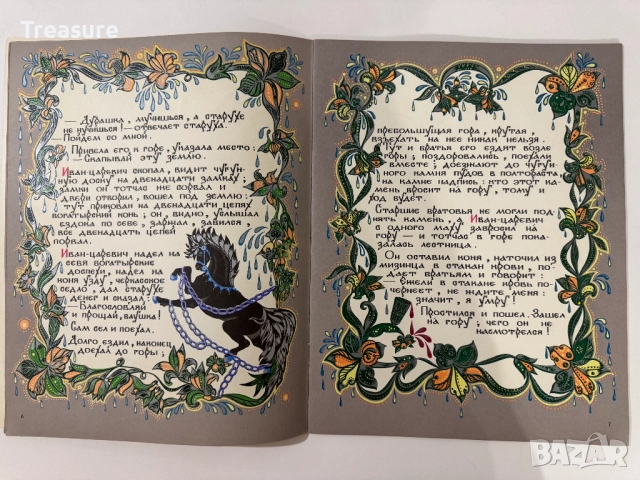 Treasure
— Дурашка, мучишься, а старухе
не кучишься! — отвечает старуха.
Пойдем со мной.
Привела его к горе, указала место:
— Скапывай эту землю.
Иван-царевич скопал, видит чугун-
ную доску на двенадцати замках;
замки он тотчас же сорвал и
двери отворил, вошел под землю:
тут прикован на двенадцати цепях
богатырский конь; он, видно, услышал
ездока по себе, заржал, забился,
все двенадцать цепей
порвал.
Иван-царевич надел на
себя богатырские
доспехи, надел на
коня узду, черкасское
седло, дал старухе
денег и сказал:
— Благословляй
и прощай, баушка!
Сам сел и поехал.
Долго ездил, наконец
доехал до горы;
6
пребольшущая гора, крутая,
взъехать на нее никак нельзя.
Тут и братья его ездят возле
горы; поздоровались, поехали
вместе; доезжают до чугун-
ного камня пудов в полтораста,
на камне надпись: кто этот ка-
мень бросит на гору, тому и
ход будет.
Старшие братовья не могли под-
нять камень, а Иван-царевич
с одного маху забросил на
гору — и тотчас в горе пока-
залась лестница.
Он оставил коня, наточил из
мизинца в стакан крови, по-
дает братьям и говорит:
— Ежели в стакане кровь по-
чернеет, не ждите меня:
значит, я умру!
Простился и пошел. Зашел
на гору; чего он не
насмотрелся!
7
BAZAR